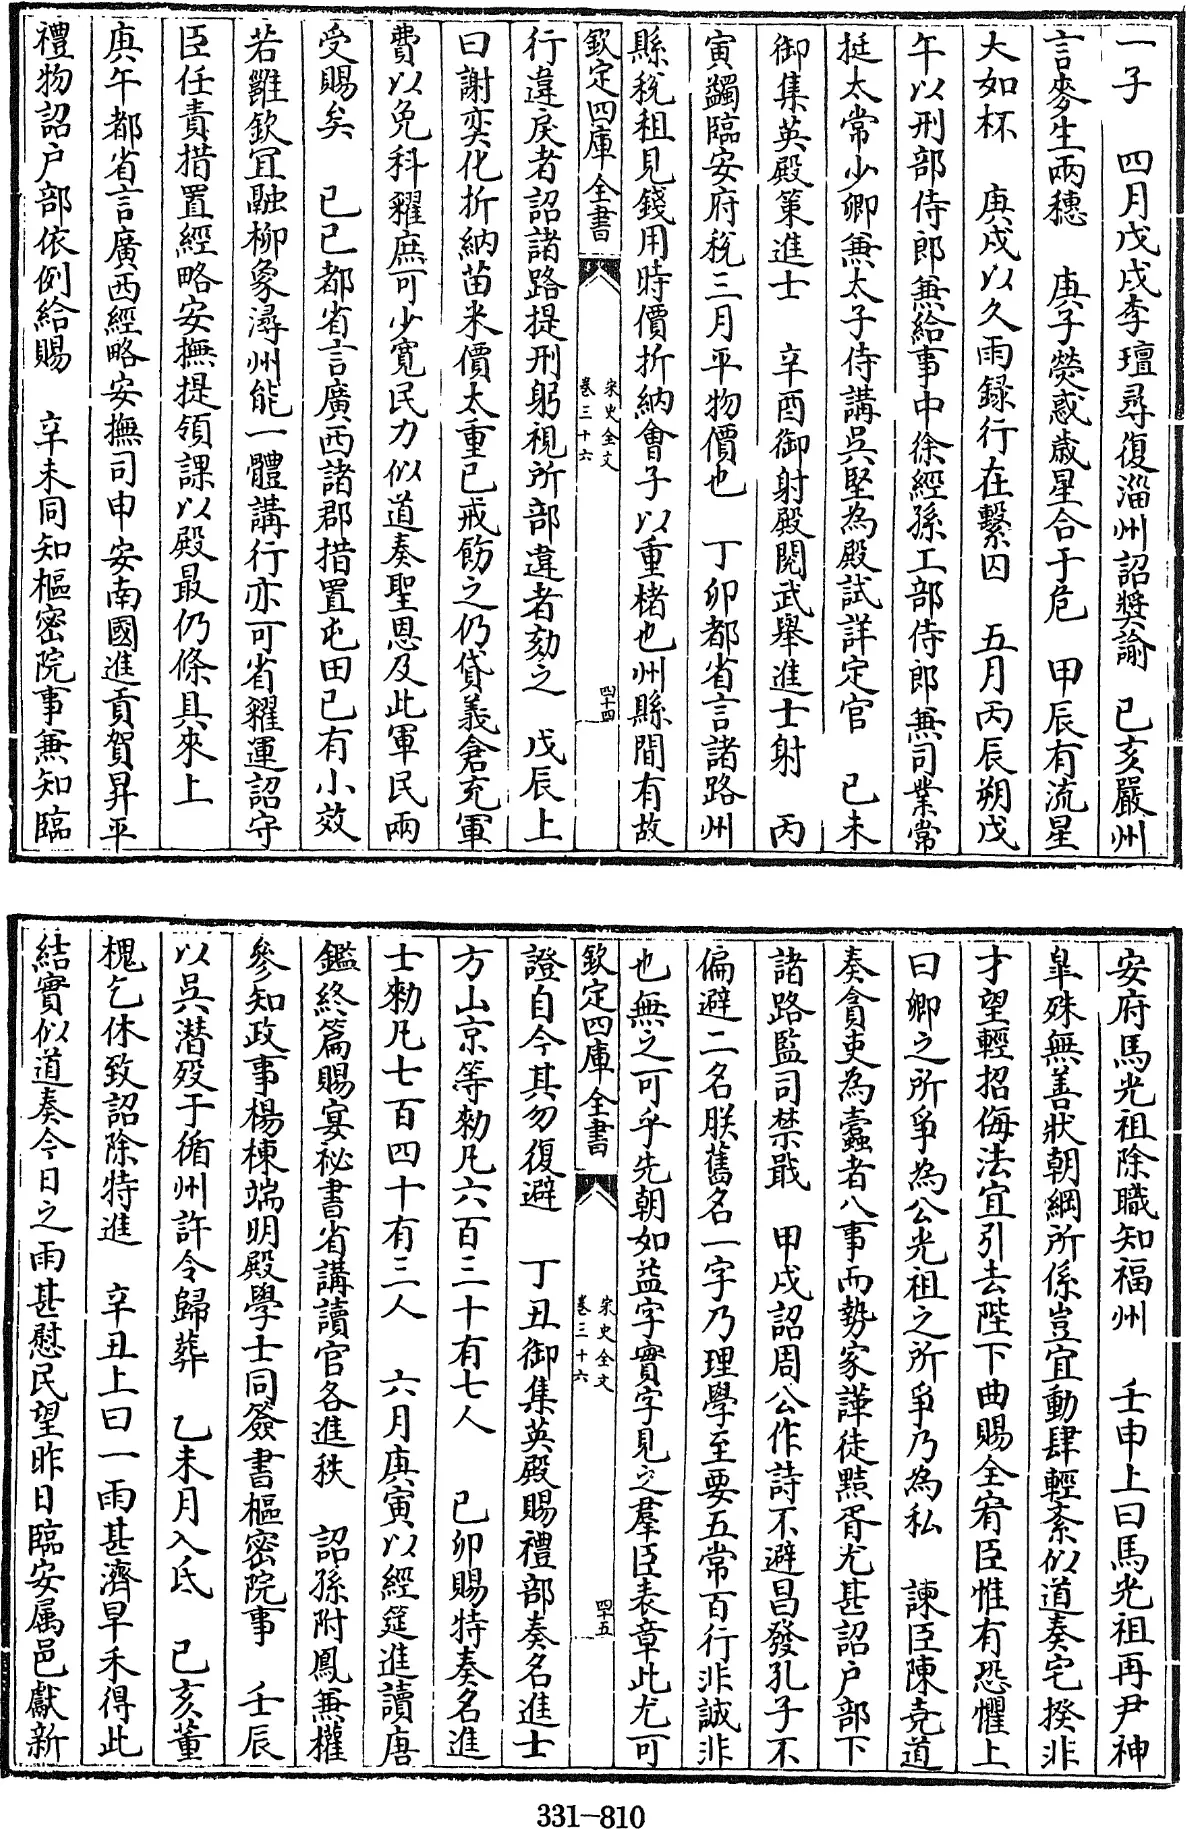 一子　四月戊戌李璮尋復淄州詔奬諭　己亥嚴州
言麥生兩穗　庚子熒惑歲星合于危　甲辰有流星
大如杯　庚戌以久雨録行在繫囚　五月丙辰朔戊
午以刑部侍郎兼給事中徐經孫工部侍郎兼司業常
挺太常少卿兼太子侍講吳堅為殿試詳定官　己未
御集英殿策進士　辛酉御射殿閲武舉進士射　丙
寅蠲臨安府稅三月平物價也　丁卯都省言諸路州
縣稅租見錢用時價折納會子以重楮也州縣間有故
欽定四庫全書　宋史全文　卷三十六　四十四
行違戾者詔諸路提刑躬視所部違者劾之　戊辰上
曰謝奕化折納苗米價太重已戒飭之仍貸義倉充軍
費以免科糴庶可少寛民力似道奏聖恩及此軍民兩
受賜矣　己巳都省言廣西諸郡措置屯田已有小效
若雖欽宜融柳象潯州能一體講行亦可省糴運詔守
臣任責措置經略安撫提領課以殿最仍條具來上
庚午都省言廣西經略安撫司申安南國進貢賀昇平
禮物詔户部依例給賜　辛未同知樞密院事兼知臨
安府馬光祖除職知福州　壬申上曰馬光祖再尹神
臯殊無善狀朝綱所係豈宜動肆輕紊似道奏宅揆非
才望輕招侮法宜引去陛下曲賜全宥臣惟有恐懼上
曰卿之所爭為公光祖之所爭乃為私　諫臣陳堯道
奏貪吏為蠹者八事而勢家譁徒黠胥尤甚詔户部下
諸路監司禁戢　甲戌詔周公作詩不避昌發孔子不
偏避二名朕舊名一字乃理學至要五常百行非誠非
也無之可乎先朝如益字實字見之羣臣表章此尤可
欽定四庫全書　宋史全文　卷三十六　四十五
證自今其勿復避　丁丑御集英殿賜禮部奏名進士
方山京等勑凡六百三十有七人　己卯賜特奏名進
士勑凡七百四十有三人　六月庚寅以經筵進讀唐
鑑終篇賜宴祕書省講讀官各進秩　詔孫附鳳兼權
參知政事楊棟端明殿學士同簽書樞密院事　壬辰
以吳潛歿于循州許令歸葬　乙未月入氐　己亥董
槐乞休致詔除特進　辛丑上曰一雨甚濟早禾得此
結實似道奏今日之雨甚慰民望昨日臨安属邑獻新
331-810